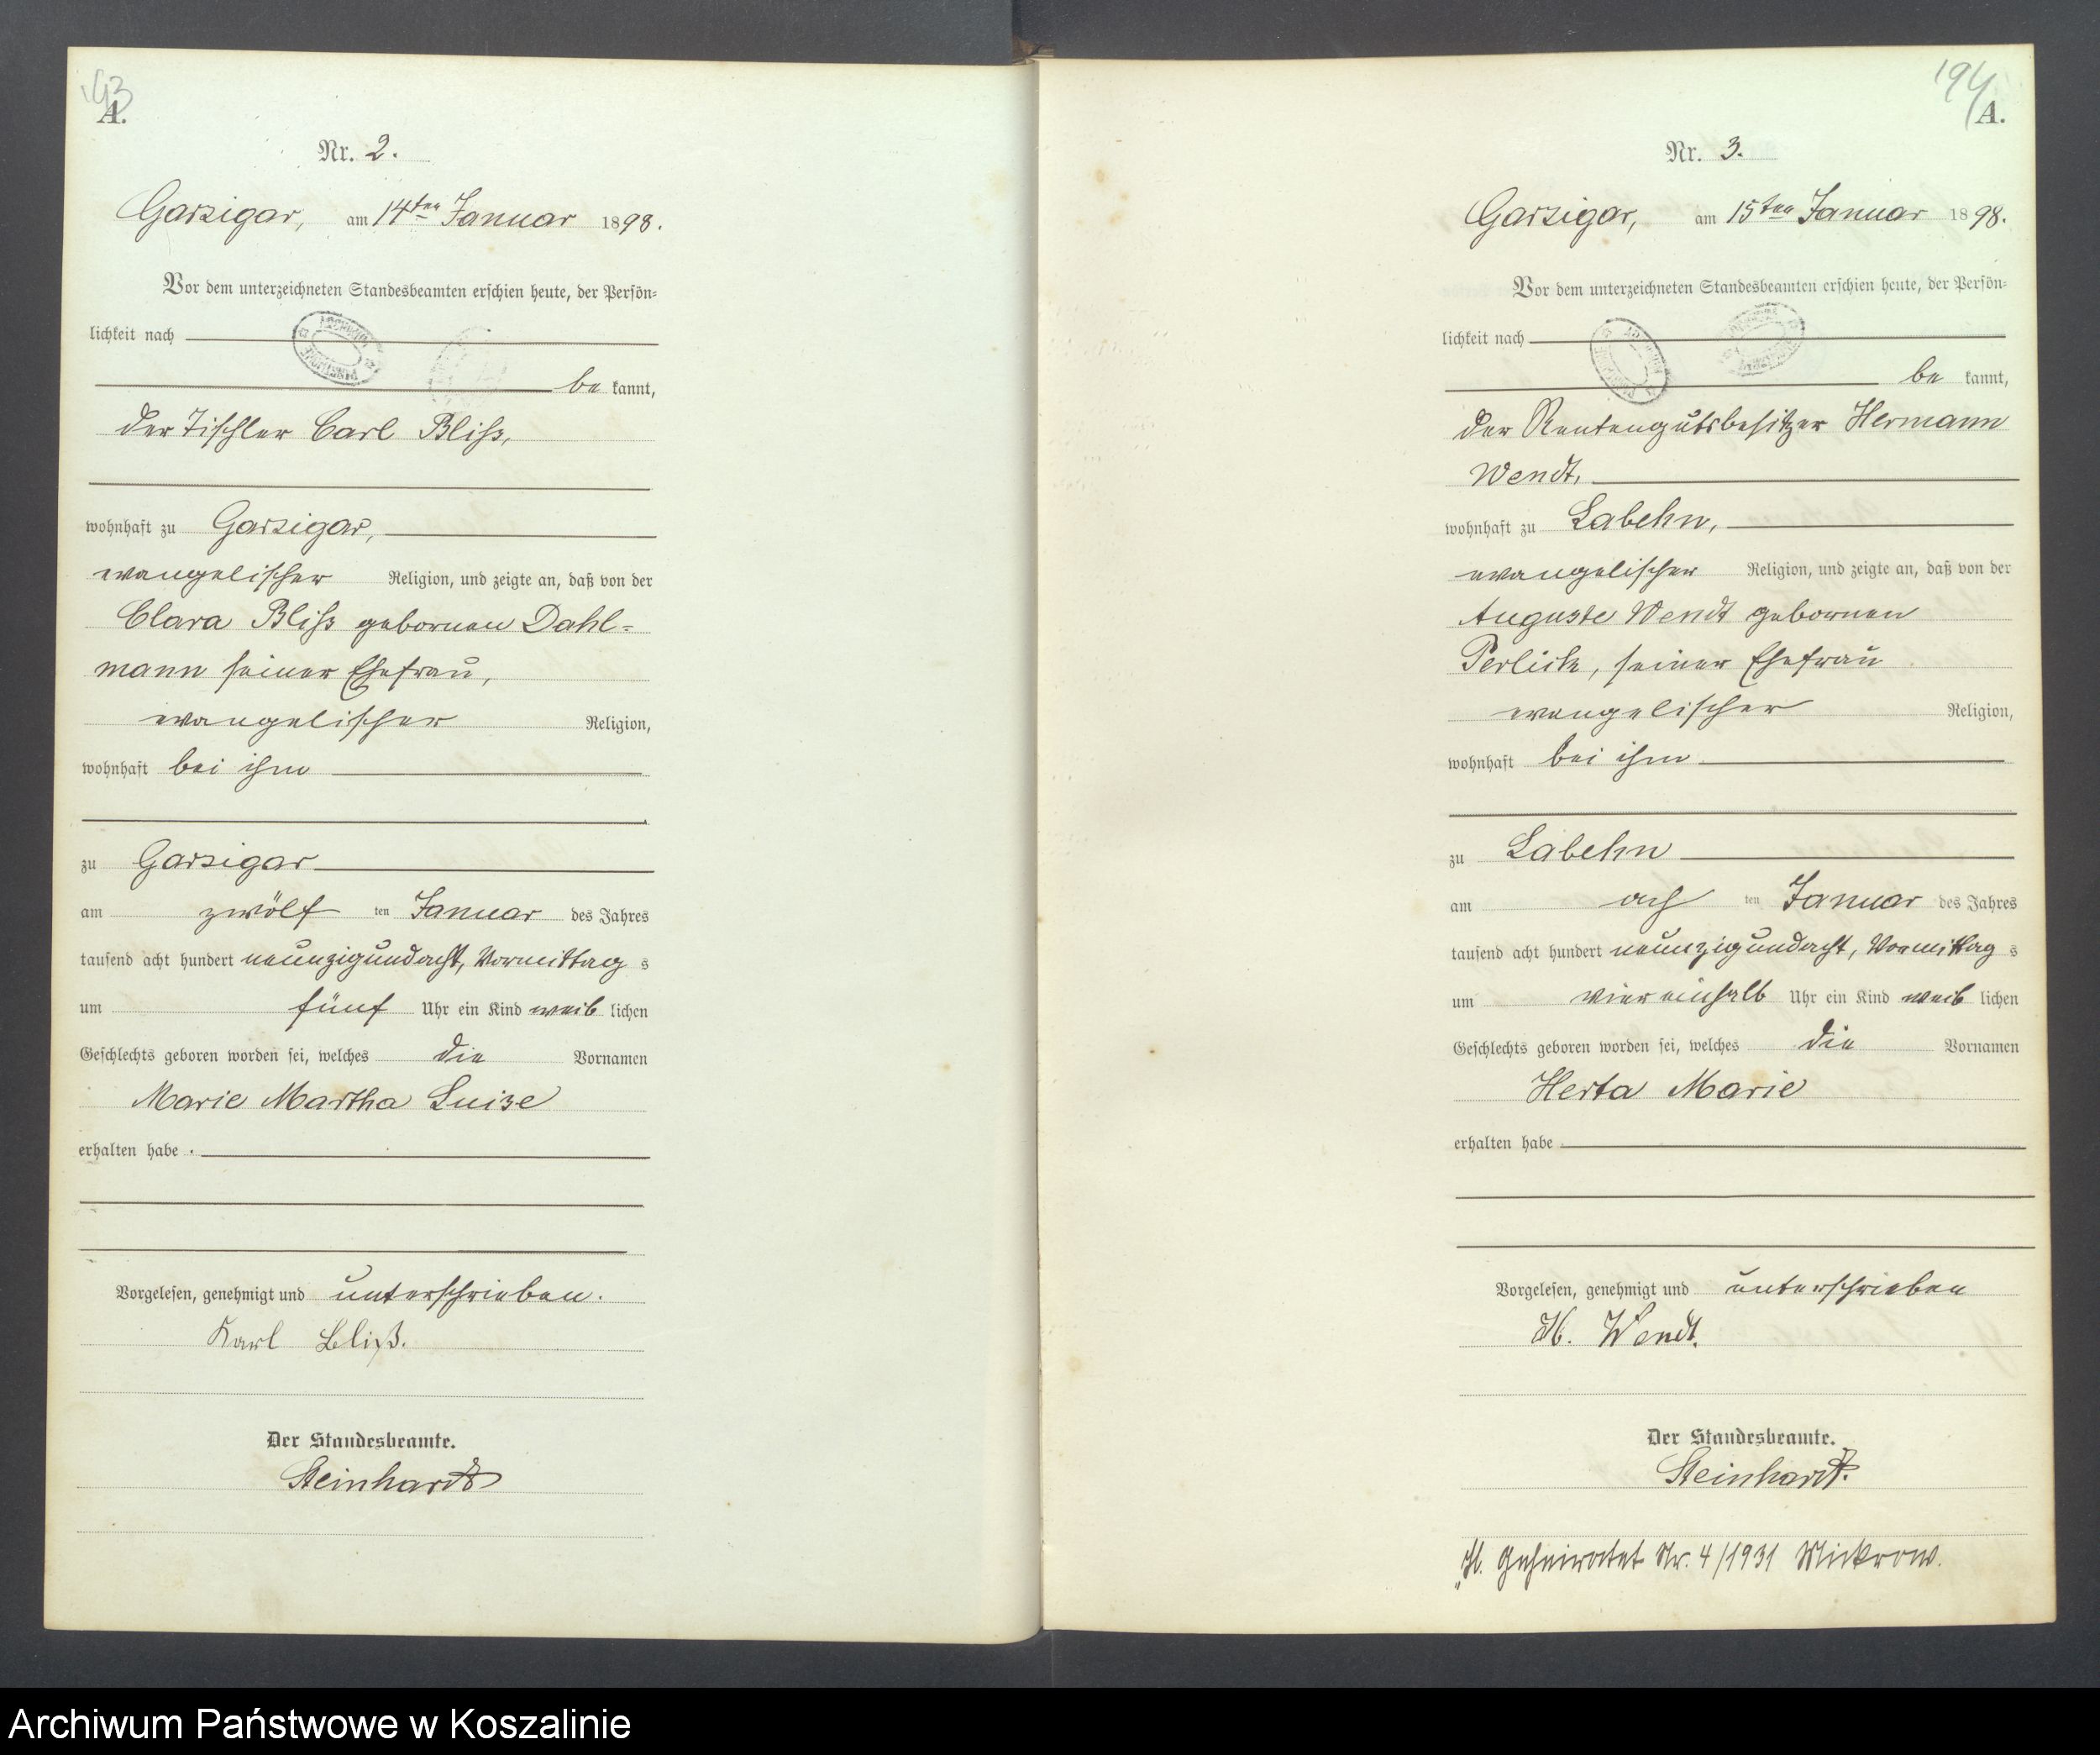 193
A.
Nr. 2.
Garzigar, am 14ten Januar 1898.
Vor dem unterzeichneten Standesbeamten erschien heute, der Persön-
lichkeit nach
be kannt,
der Tischler Carl Bliss,
wohnhaft zu Garzigar,
evangelischer Religion, und zeigte an, daß von der
Clara Bliss gebornen Dahl-
mann seiner Ehefrau,
evangelischer Religion,
wohnhaft bei ihm
zu Garzigar
am zwölf ten Januar des Jahres
tausend acht hundert neunzigundacht, Vormittag s
um fünf Uhr ein Kind weib lichen
Geschlechts geboren worden sei, welches die Vornamen
Marie Martha Luise
erhalten habe .
Vorgelesen, genehmigt und unterschrieben.
Karl Bliß.
Der Standesbeamte.
Steinhardt
194
A.
Nr. 3.
Garzigar, am 15ten Januar 1898.
Vor dem unterzeichneten Standesbeamten erschien heute, der Persön-
lichkeit nach
be kannt,
der Rentengutsbesitzer Hermann
Wendt,
wohnhaft zu Labehn,
evangelischer Religion, und zeigte an, daß von der
Auguste Wendt gebornen
Perlick, seiner Ehefrau
evangelischer Religion,
wohnhaft bei ihm
zu Labehn
am ach ten Januar des Jahres
tausend acht hundert neunzigundacht, Vormittag s
um viereinhalb Uhr ein Kind weib lichen
Geschlechts geboren worden sei, welches die Vornamen
Herta Marie
erhalten habe
Vorgelesen, genehmigt und unterschrieben
H. Wendt.
Der Standesbeamte.
Steinhardt.
H. Geheiratet Nr. 4/1931 Mickrow.
Archiwum Państwowe w Koszalinie